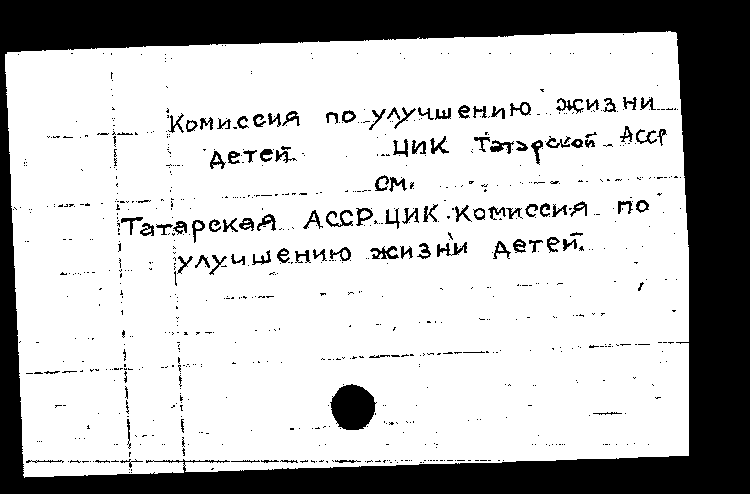 Комиссия по улучшению жизни
детей. ЦИК Татарской АССР
см.
Татарская АССР. ЦИК. Комиссия по
улучшению жизни детей.